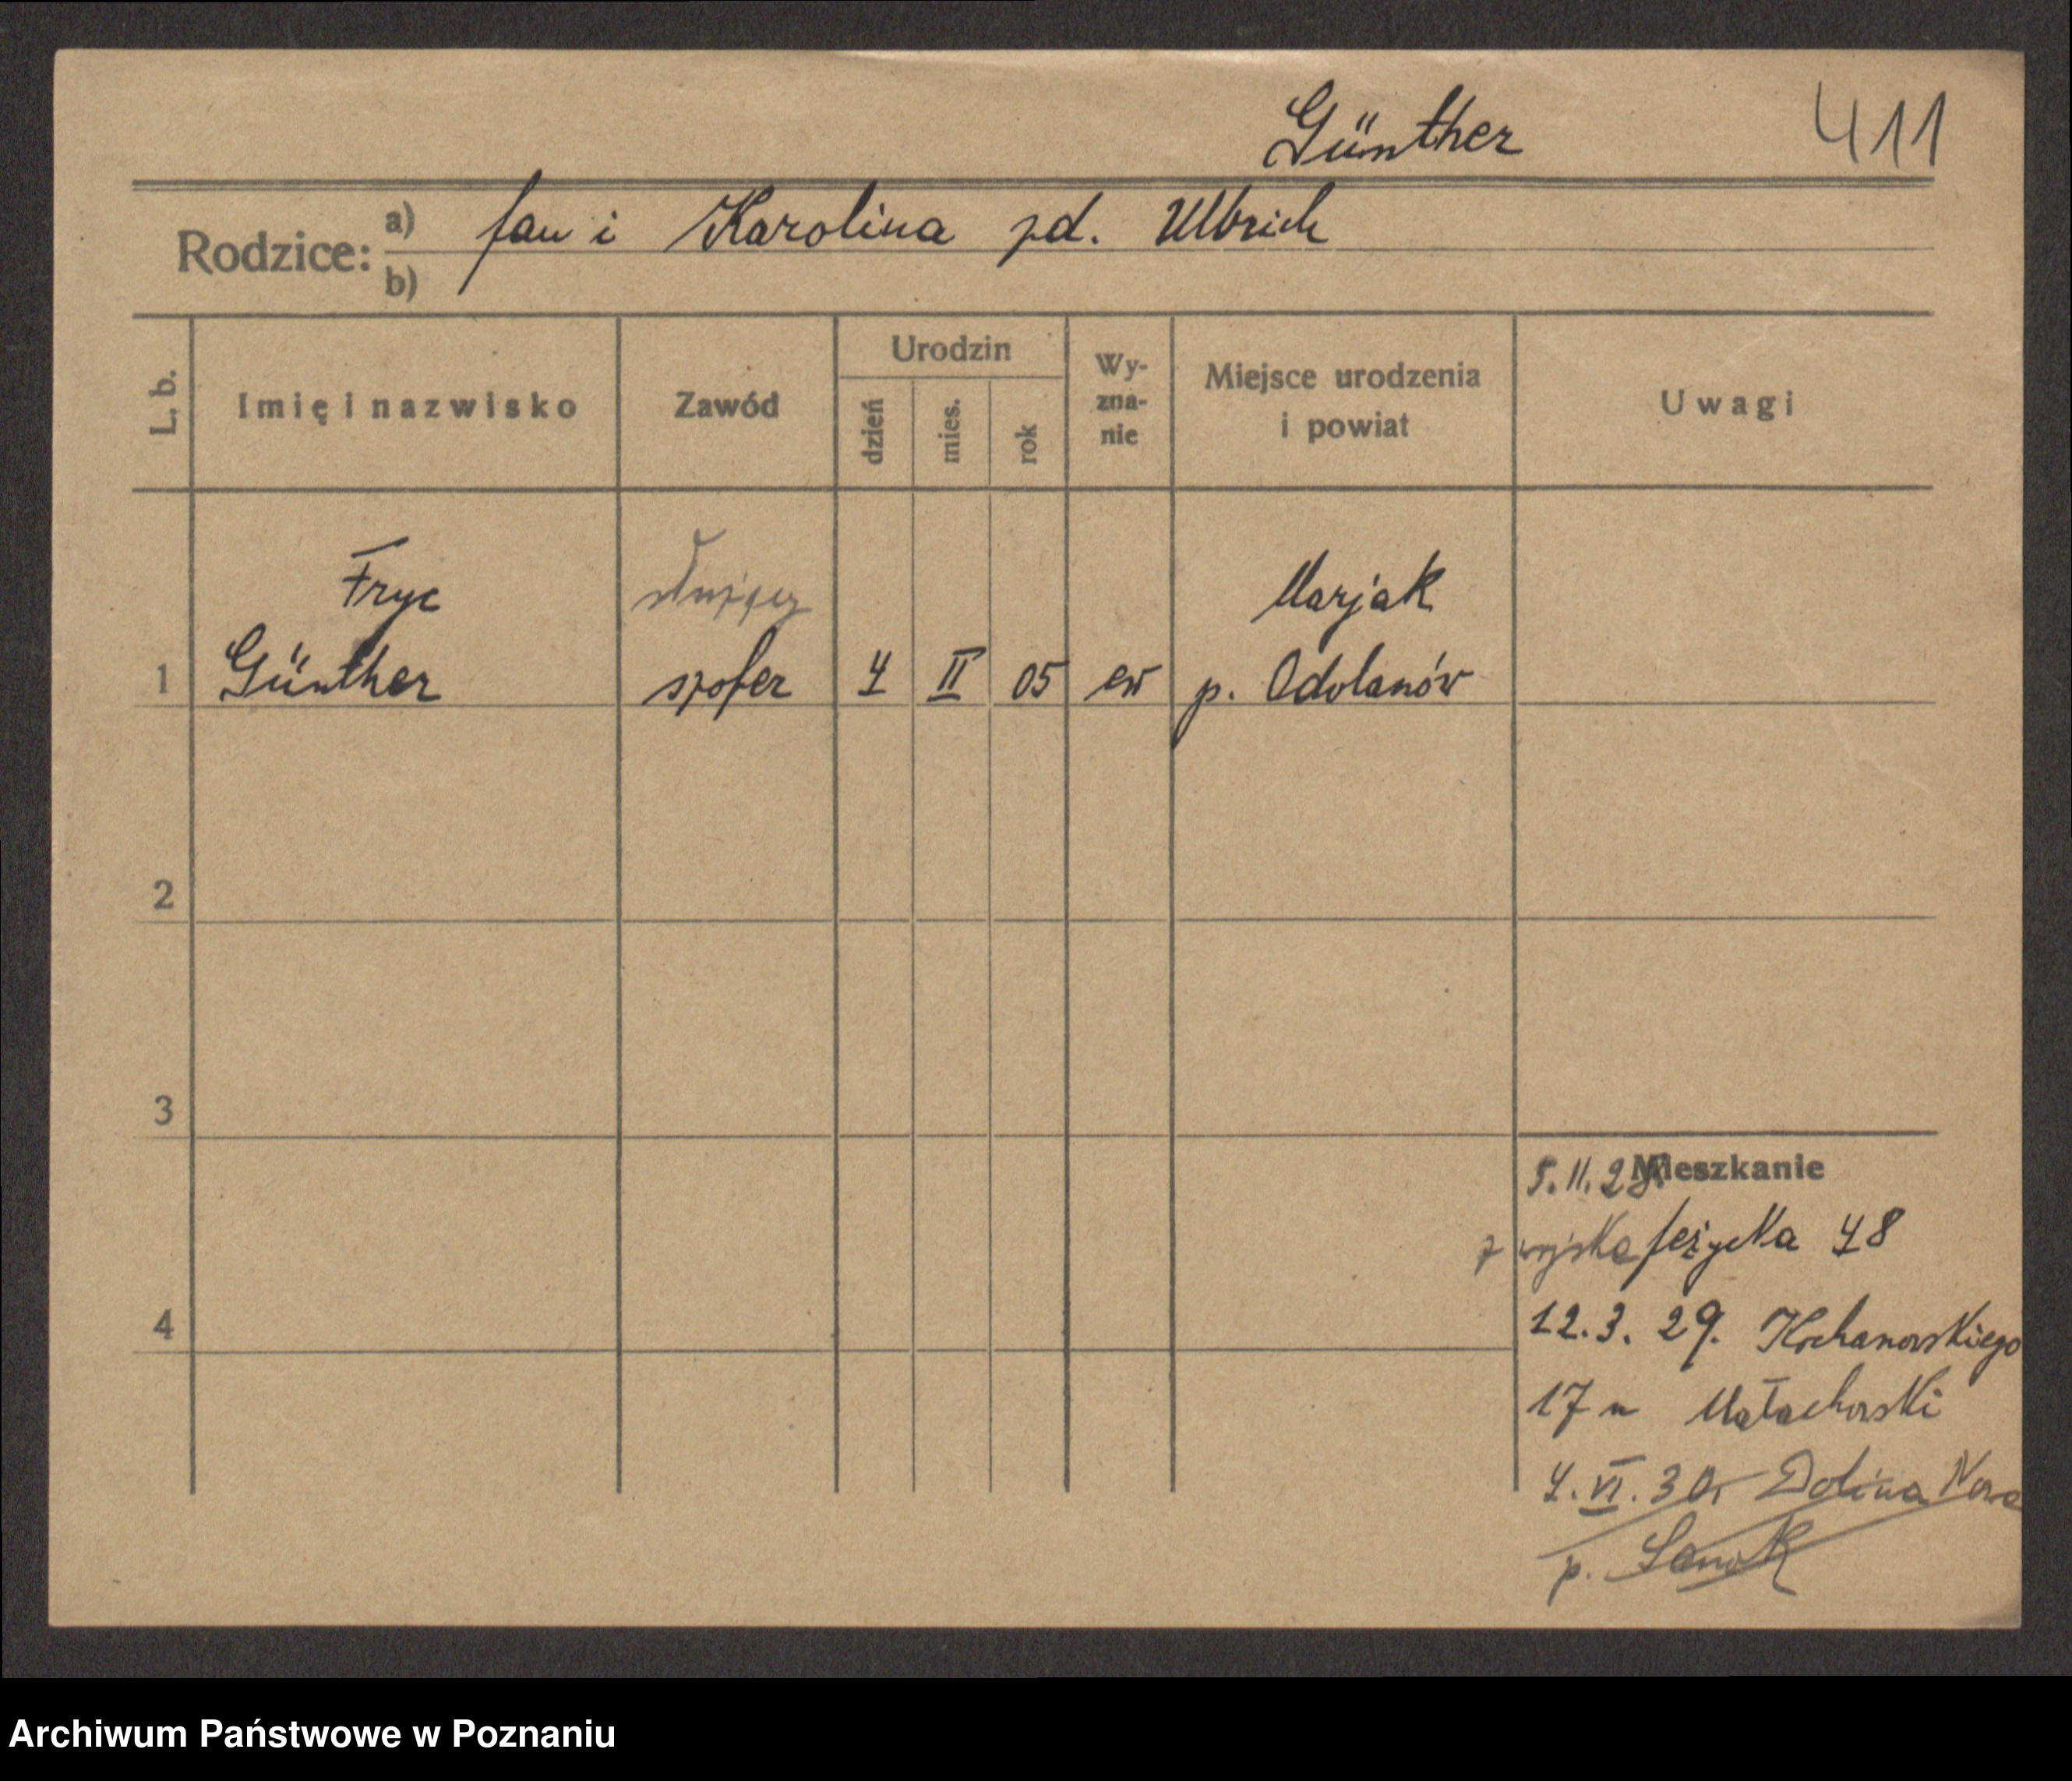 Günther 411
Rodzice: a) Jan i Karolina zd. Ulbrich
b)
L. b. Imię i nazwisko Zawód Urodzin dzień mies. rok Wy-zna-nie Miejsce urodzenia i powiat Uwagi
Fryc służący Marjak
1 Günther szofer 4 II 05 ew p. Odolanów
2
3
Mieszkanie
5.11.28.
z wojska Jeżycka 48
4
12.3.29. Kochanowskiego
17 u Małachowski
4.VI.30. Dolina Nowa
p. Sanok
Archiwum Państwowe w Poznaniu